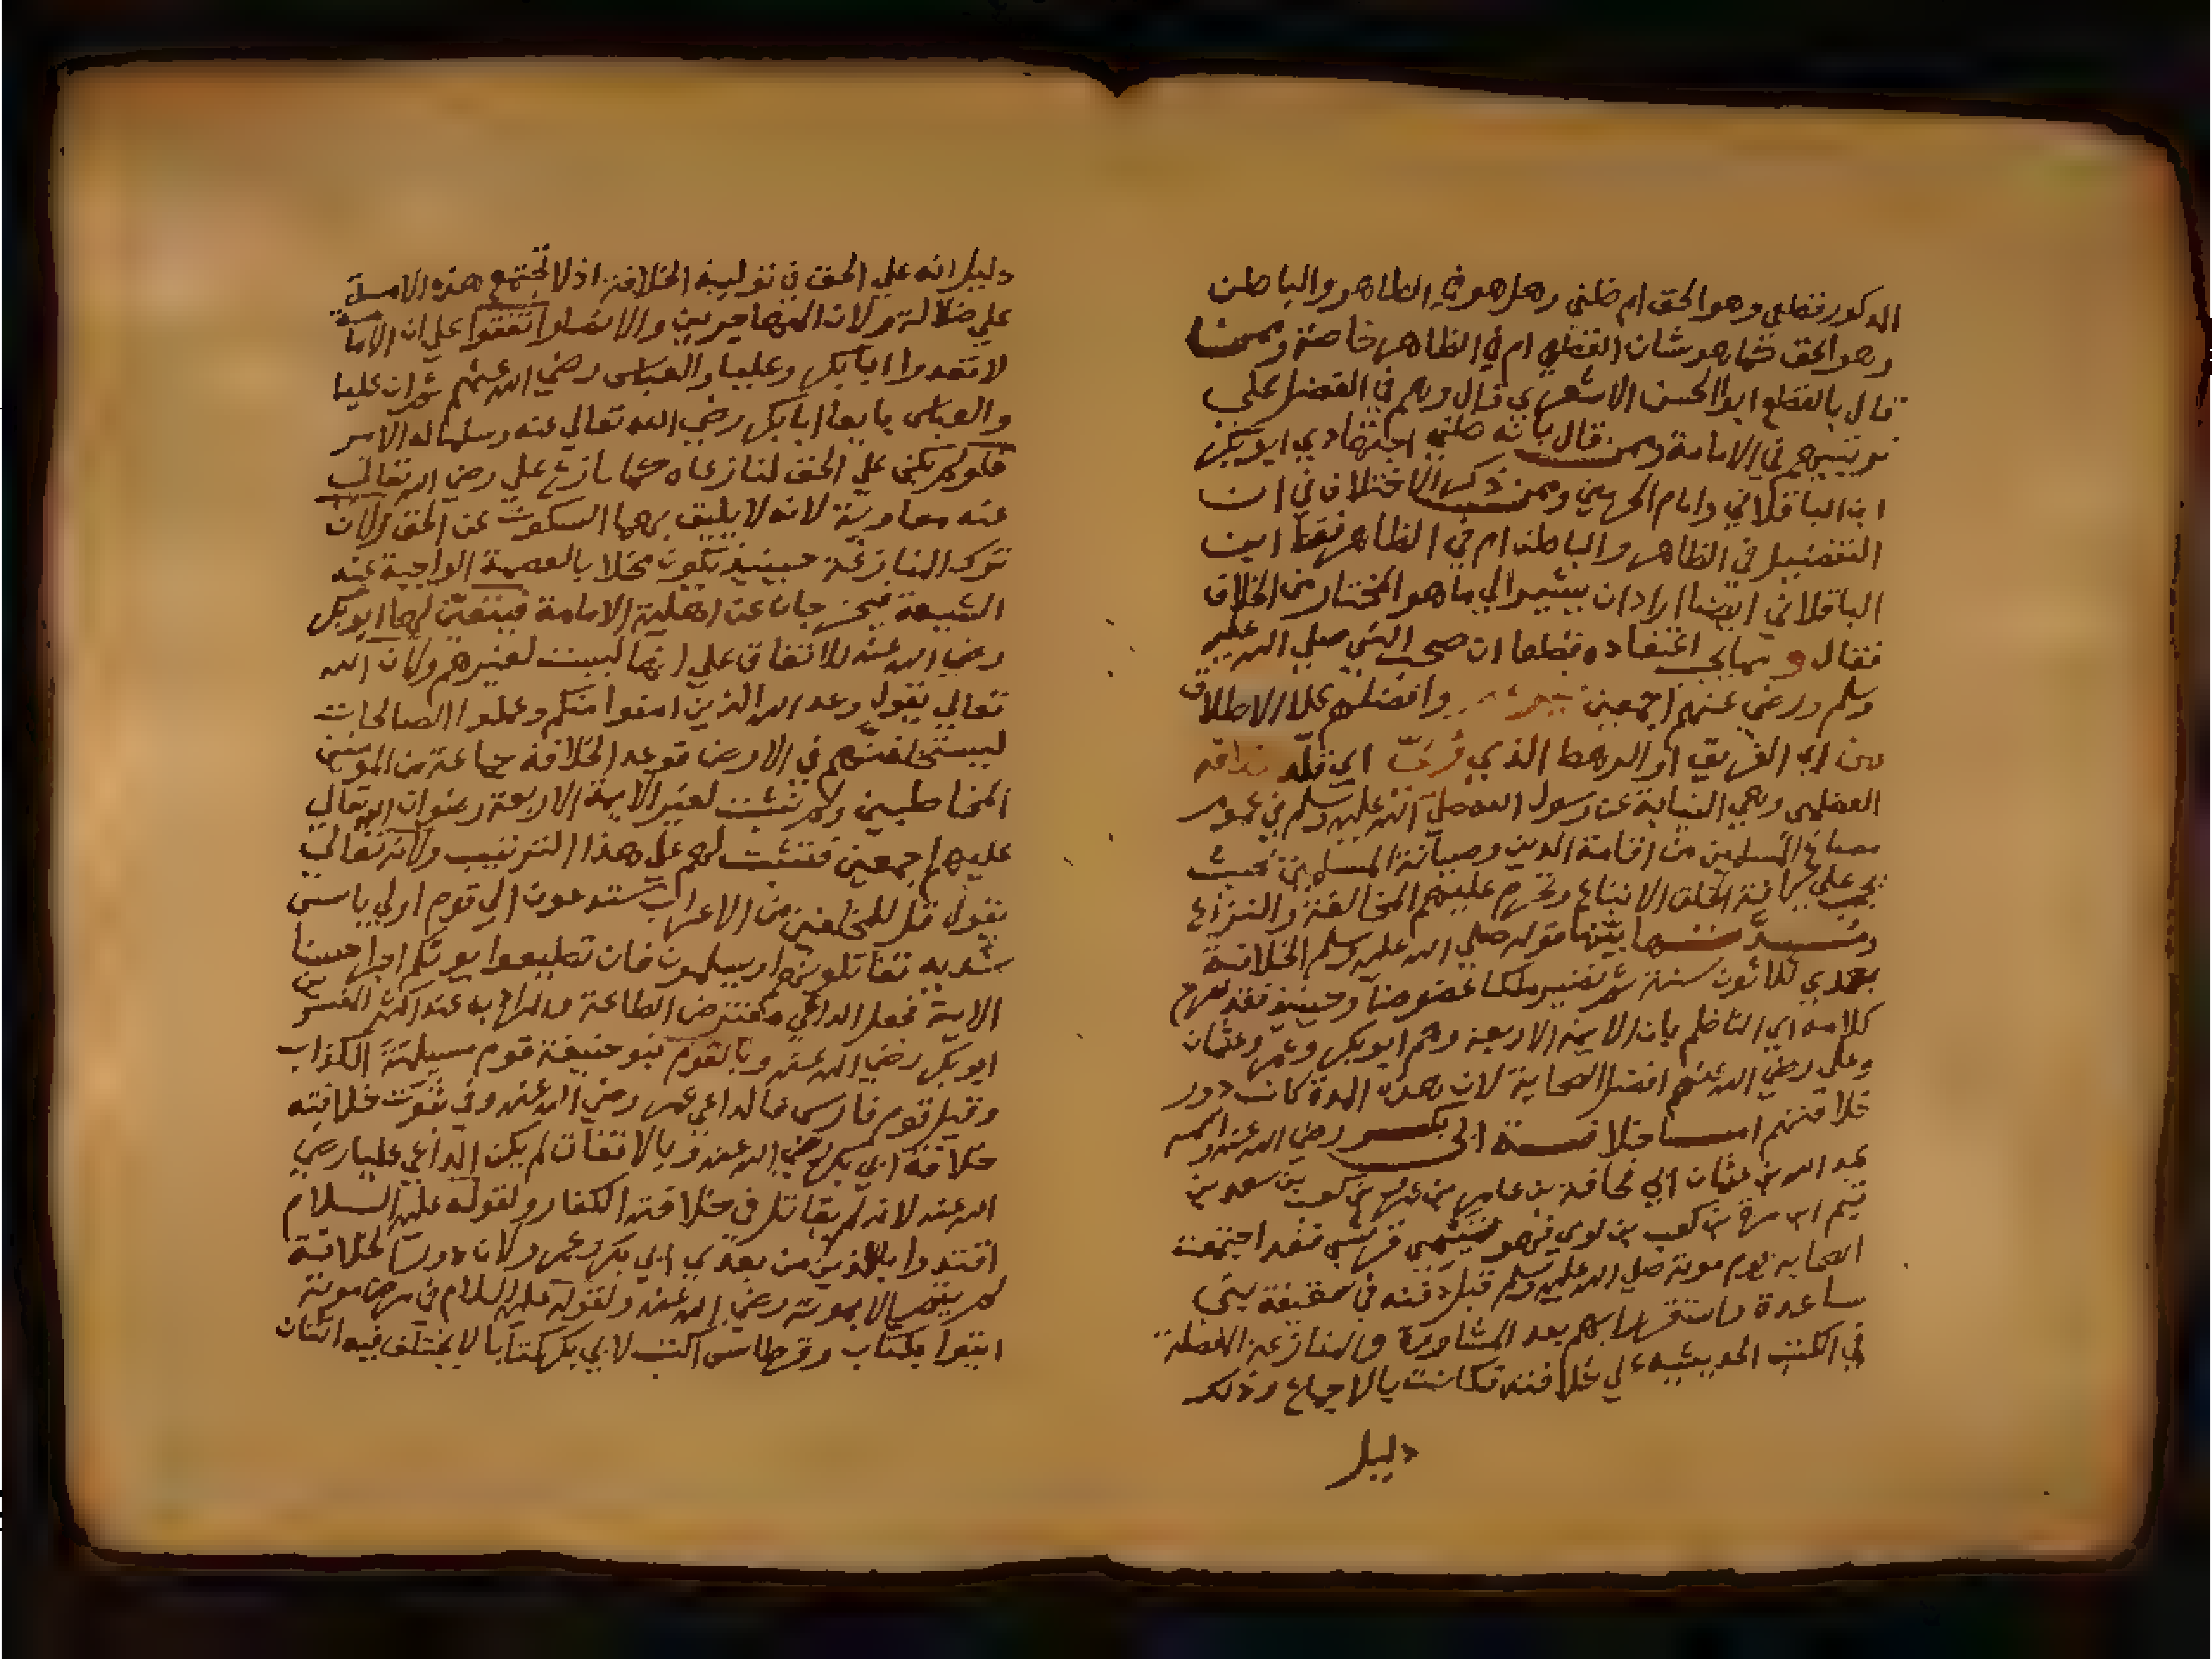 المذكور قطعي وهو الحق ام ظني وهل هو في الظاهر والباطن
وهو الحق كما هو شان القطعي ام في الظاهر خاصة وممن
قال بالقطع ابو الحسن الاشعري قال وهم في الفضل علي
ترتيبهم في الامامة وممن قال بانه ظني اجتهادي ابو بكر
ابن الباقلاني وامام الحرمين وممن ذكر الاختلاف في ان
التفضيل في الظاهر والباطن ام في الظاهر فقط ابن
الباقلاني ايضا اراد ان يشير الي ما هو المختار من الخلاف
فقال و مما يجب اعتقاده قطعا ان صحب النبي صلي الله عليه
وسلم ورضي عنهم اجمعين وافضلهم علي الاطلاق
من اي الفريق او الرهط الذي اي
العظمي وهي النيابة عن رسول الله صلي الله عليه وسلم في عموم
مصالح المسلمين من اقامة الدين وصيانة المسلمين بحيث
يجب علي كافة الخلق الاتباع وتحرم عليهم المخالفة والنزاع
بينها قوله صلي الله عليه وسلم الخلافة
بعدي ثلاثون سنة ثم تصير ملكا عضوضا وحينيذ فقد
كلامه اي الناظم بان الايمة الاربعة وهم ابو بكر وعمر وعثمان
وعلي رضي الله عنهم افضل الصحابة لان هذه المدة كانت دور
خلافتهم اما خلافة ابي بكر رضي الله عنه واسمه
عبد الله بن عثمان ابي قحافة بن عامر بن عمرو بن كعب بن سعد بن
تيم ابن مرة بن كعب بن لوي فهو تيمي قرشي فقد اجتمعت
الصحابه يوم موته صلي الله عليه وسلم قبل دفنه في سقيفة بني
ساعدة فاستقر رايهم بعد المشاورة والمنازعة المفصلة
في الكتب الحديثيه علي خلافته فكانت بالاجماع وذلك
دليل
دليل انه علي الحق في توليته الخلافة اذ لا تجتمع هذه الامة
علي ضلالة ولان المهاجرين والانصار اتفقوا علي ان الامامة
لا تعدوا ابا بكر وعليا والعباس رضي الله عنهم ثم ان عليا
والعباس بايعا ابا بكر رضي الله تعالي عنه وسلما له الامر
فلو لم يكن علي الحق لنازعاه كما نازع علي رضي الله تعالي
عنه معاوية لانه لا يليق بهما السكوت عن الحق ولان
ترك المنازعة حينيذ تكون مخلا بالعصمة الواجبة عند
الشيعة فيخرجان عن اهلية الامامة فيتعين لها ابو بكر
رضي الله عنه للاتفاق علي انها ليست لغيرهم ولان الله
تعالي يقول وعد الله الذين امنوا منكم وعملوا الصالحات
ليستخلفنهم في الارض فوعد الخلافة جماعة من المومنين
المخاطبين ولم تثبت لغير الايمة الاربعة رضوان الله تعالي
عليهم اجمعين فتثبت لهم علي هذا الترتيب ولانه تعالي
يقول قل للمخلفين من الاعراب ستدعون الي قوم اولي باس
شديد تقاتلونهم او يسلمون فان تطيعوا يوتكم اجرا حسنا
الاية فجعل الداعي مفترض الطاعة والمراد به عند اكثر المفسرين
ابو بكر رضي الله عنه وبالقوم بنو حنيفة قوم مسيلمة الكذاب
وقيل قوم فارس فالداعي عمر رضي الله عنه وفي ثبوت خلافته
خلافة ابي بكر رضي الله عنه وبالاتفاق لم يكن الداعي عليا رضي
الله عنه لانه لم يقاتل في خلافته الكفار ولقوله عليه السلام
اقتدوا بالذين من بعدي ابي بكر وعمر وكان دور الخلافة
لم ينته الا بموته رضي الله عنه ولقوله عليه السلام في مرض موته
ايتوا بكتاب وقرطاس اكتب لابي بكر كتابا لا يختلف فيه اثنان